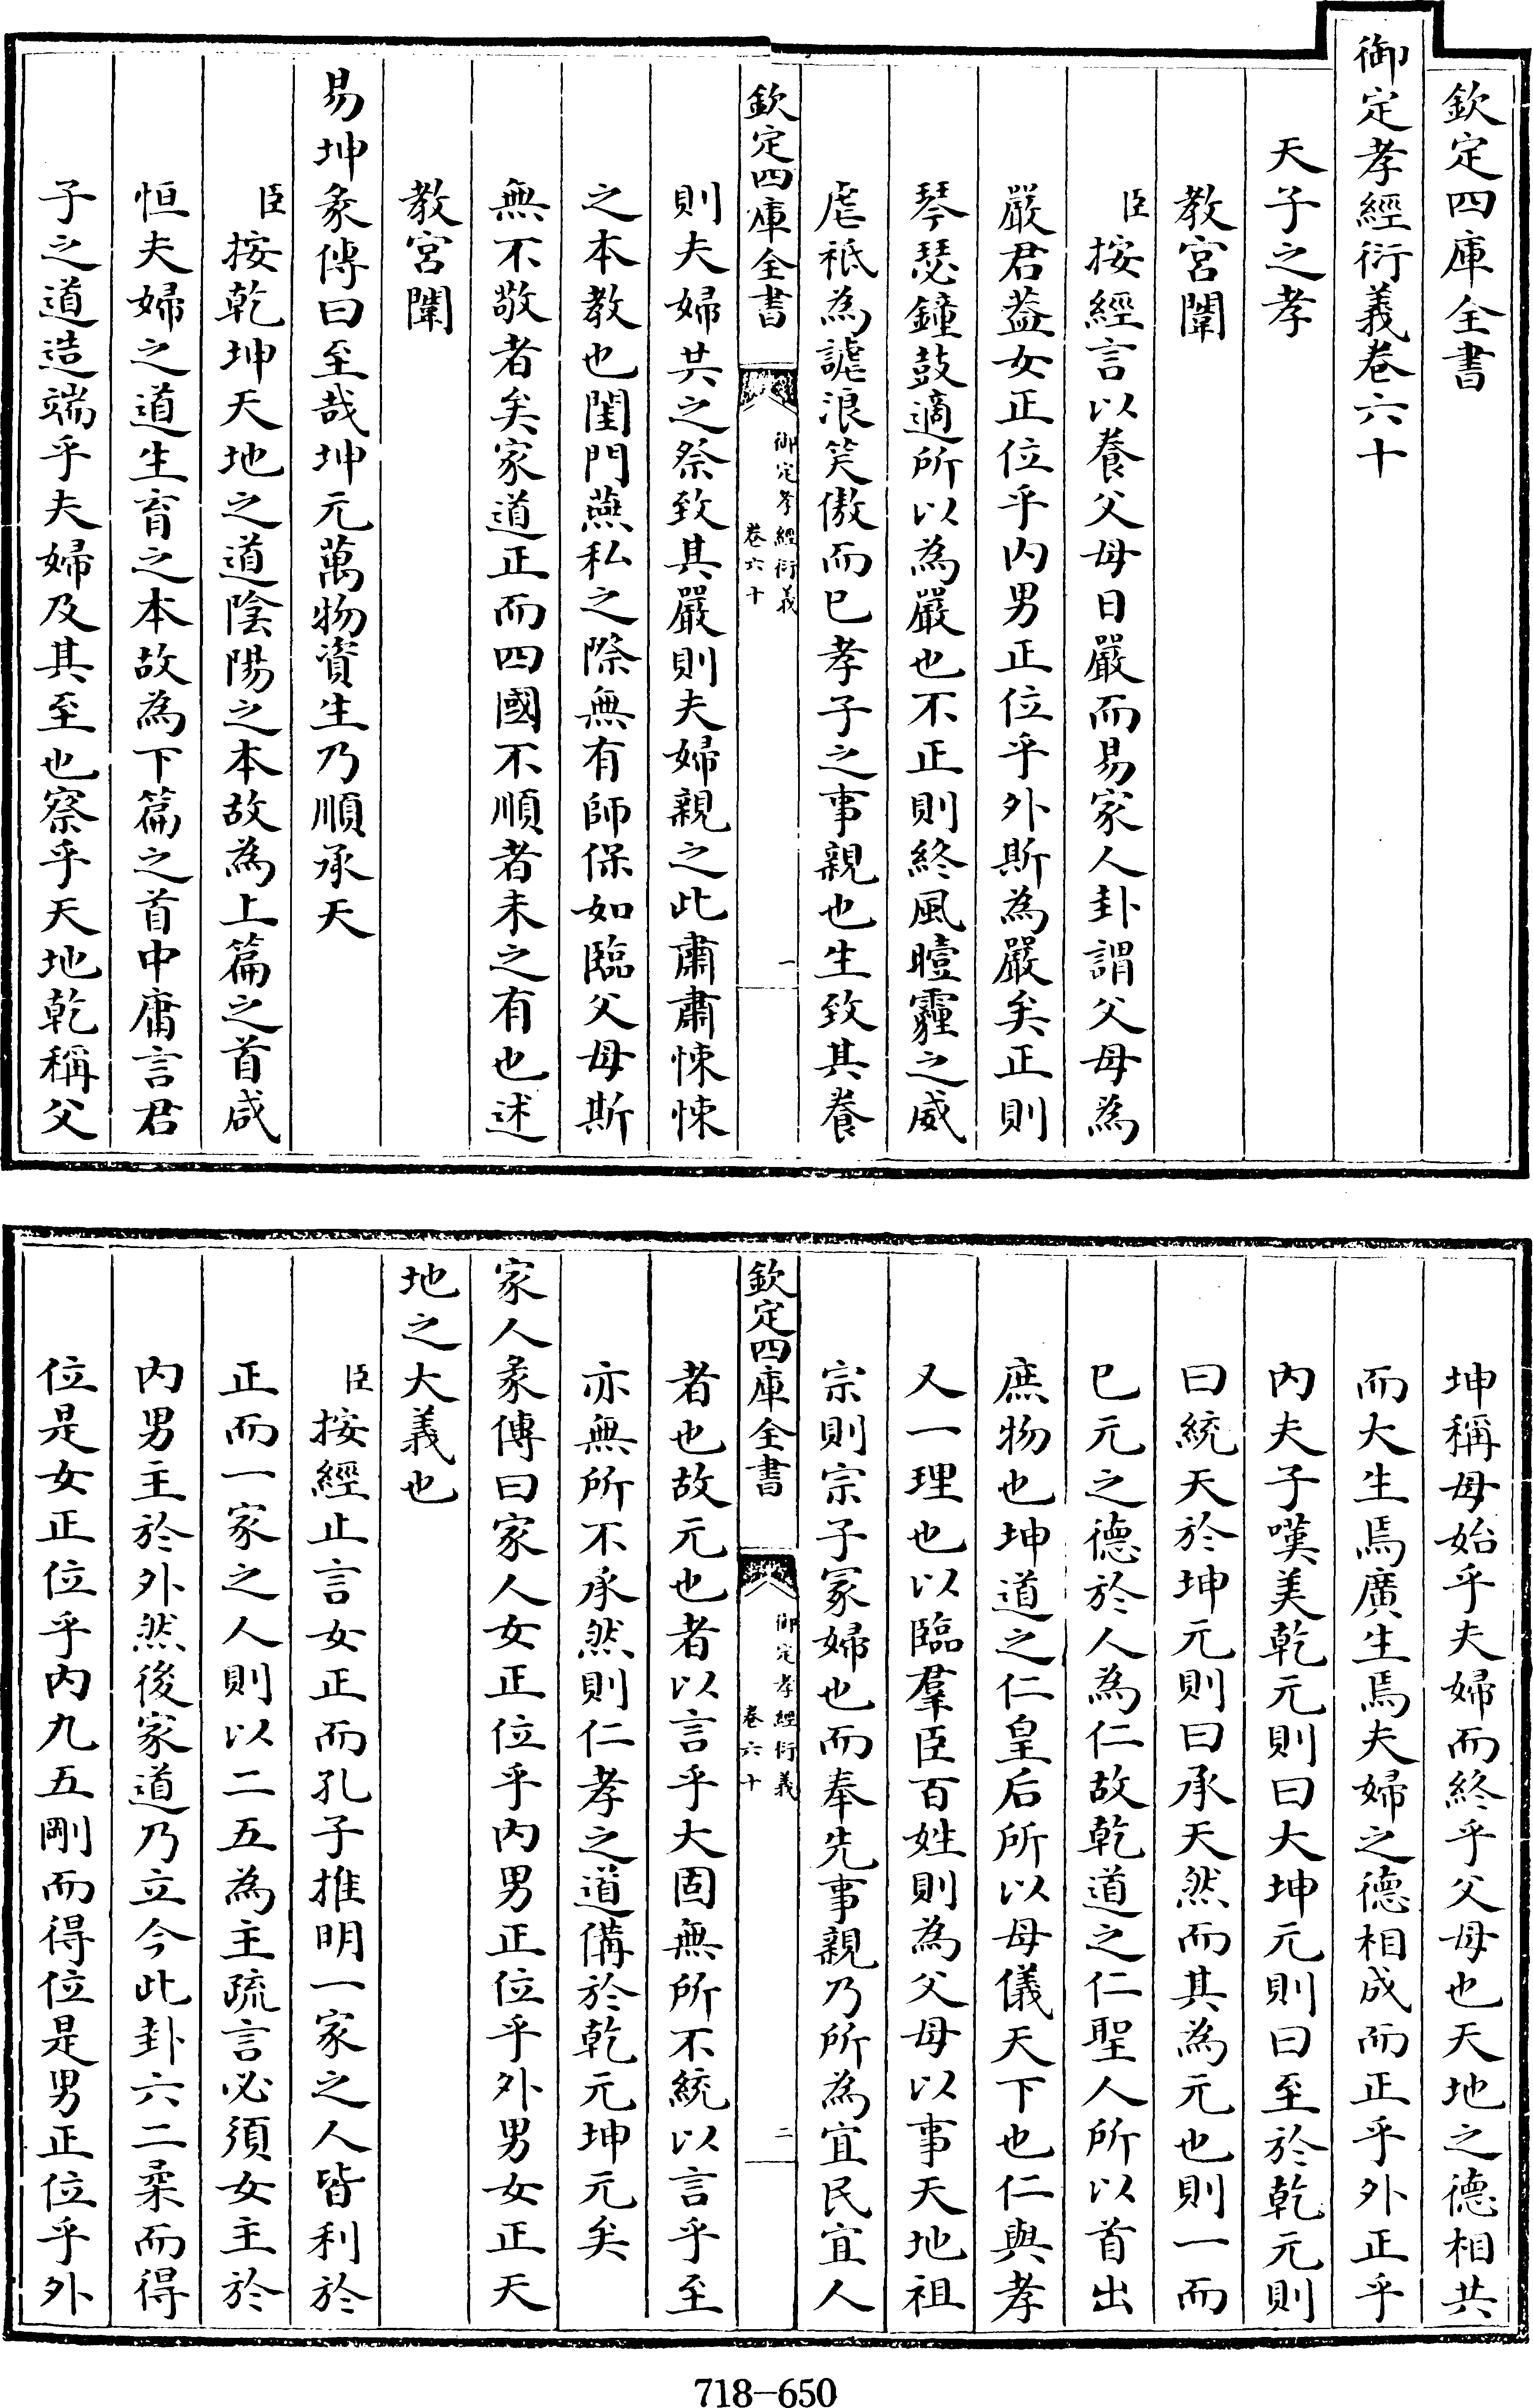 欽定四庫全書
御定孝經衍義卷六十
天子之孝
教宮闈
臣按經言以養父母日嚴而易家人卦謂父母為
嚴君葢女正位乎内男正位乎外斯為嚴矣正則
琴瑟鐘鼓適所以為嚴也不正則終風曀霾之威
虐秪為謔浪笑傲而已孝子之事親也生致其養
欽定四庫全書
御定孝經衍義
卷六十
一
則夫婦共之祭致其嚴則夫婦親之此肅肅悚悚
之本教也閨門燕私之際無有師保如臨父母斯
無不敬者矣家道正而四國不順者未之有也述
教宮闈
易坤彖傳曰至哉坤元萬物資生乃順承天
臣按乾坤天地之道陰陽之本故為上篇之首咸
恒夫婦之道生育之本故為下篇之首中庸言君
子之道造端乎夫婦及其至也察乎天地乾稱父
坤稱母始乎夫婦而終乎父母也天地之德相共
而大生焉廣生焉夫婦之德相成而正乎外正乎
内夫子嘆美乾元則曰大坤元則曰至於乾元則
曰統天於坤元則曰承天然而其為元也則一而
已元之德於人為仁故乾道之仁聖人所以首出
庶物也坤道之仁皇后所以母儀天下也仁與孝
又一理也以臨羣臣百姓則為父母以事天地祖
宗則宗子冢婦也而奉先事親乃所為宜民宜人
欽定四庫全書
御定孝經衍義
卷六十
二
者也故元也者以言乎大固無所不統以言乎至
亦無所不承然則仁孝之道備於乾元坤元矣
家人彖傳曰家人女正位乎内男正位乎外男女正天
地之大義也
臣按經止言女正而孔子推明一家之人皆利於
正而一家之人則以二五為主疏言必須女主於
内男主於外然後家道乃立今此卦六二柔而得
位是女正位乎内九五剛而得位是男正位乎外
718-650